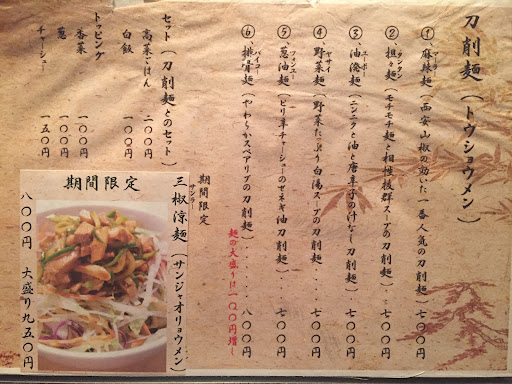 刀削麺(トウショウメン)
①、麻辣麺(西安山椒の効いた一番人気の刀削麺)・七〇〇円
マーラー
②、担々麺(モチモチ麺と相性抜群スープの刀削麺)・七〇〇円
タンタン
③、油溌麺(ニンニクと油と唐辛子の汁なし刀削麺)・七〇〇円
ユーポー
④、野菜麺(野菜たっぷり白湯スープの刀削麺)・・・七〇〇円
ヤサイ
⑤、葱油麺(ピリ辛チャーシューのせネギ油刀削麺)・・七〇〇円
⑥、排骨麺(やわらかスペアリブの刀削麺)・・・・八〇〇円
パイコー
麺の大盛りは一〇〇円増し
セット(刀削麺とのセット)
高菜ごはん 二〇〇円
白飯 一〇〇円
トッピング
香菜 一〇〇円
葱 一〇〇円
チャーシュー 一五〇円
期間限定
期間限定
三椒涼麺(サンジャオリョウメン)
サンラー
八〇〇円 大盛り九五〇円